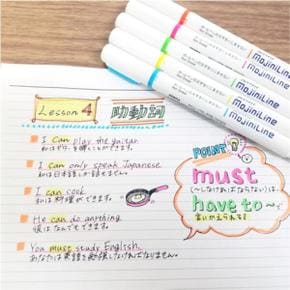 Lesson 4 助動詞
I can play the guitar.
私はギターを弾くことができます。
I can only speak Japanese.
私は日本語しか話せません。
I can cook.
私は料理ができます。
He can do anything.
彼はなんでもできます。
You must study English.
あなたは英語を勉強しなければなりません。
POINT
must
(〜しなければならない)は、
have to〜
に言いかえられる!
MojiniLine
MojiniLine
MojiniLine
MojiniLine
MojiniLine